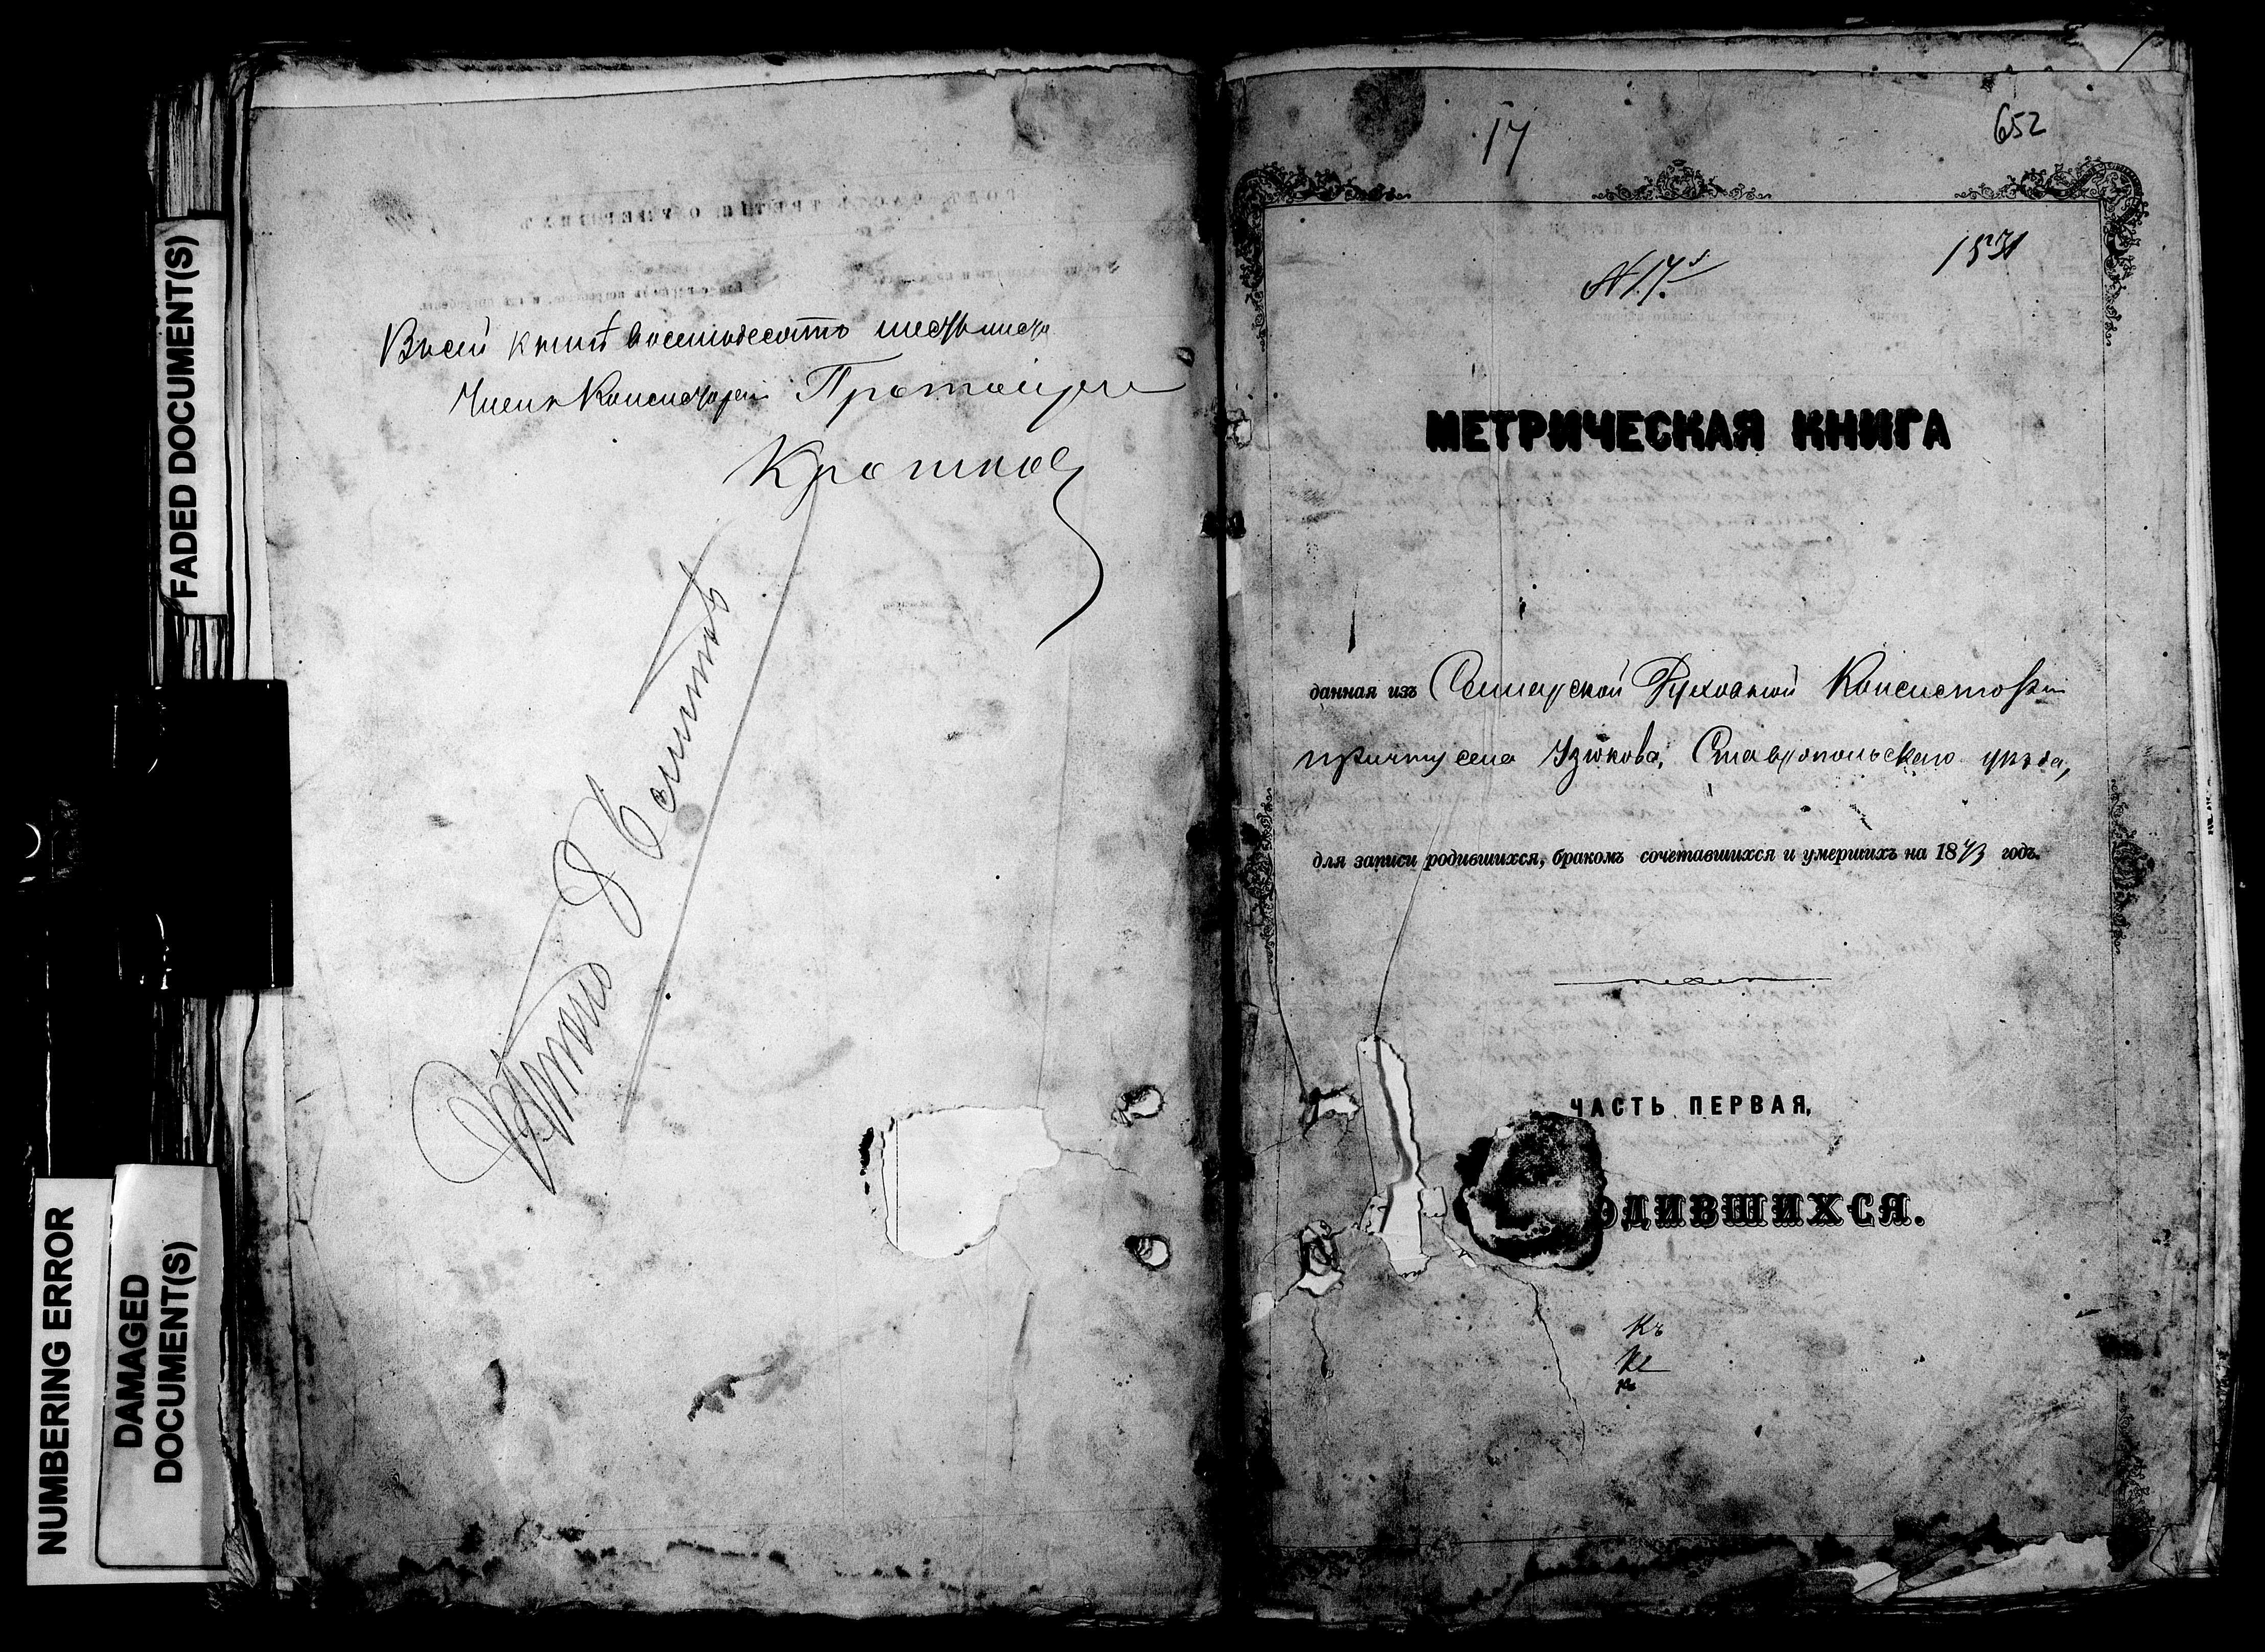 FADED DOCUMENT(S)
NUMBERING ERROR
DAMAGED
DOCUMENT(S)
Въ сей книгѣ восемьдесятъ шесть листа
Членъ Консисторіи Протоіерей
17
652
N 17.
МЕТРИЧЕСКАЯ КНИГА
данная изъ Самарской Духовной Консисторіи
причту села Узюкова, Ставропольскаго уѣзда,
для записи родившихся, бракомъ сочетавшихся и умершихъ на 1873 годъ.
ЧАСТЬ ПЕРВАЯ,
ОДИВШИХСЯ.